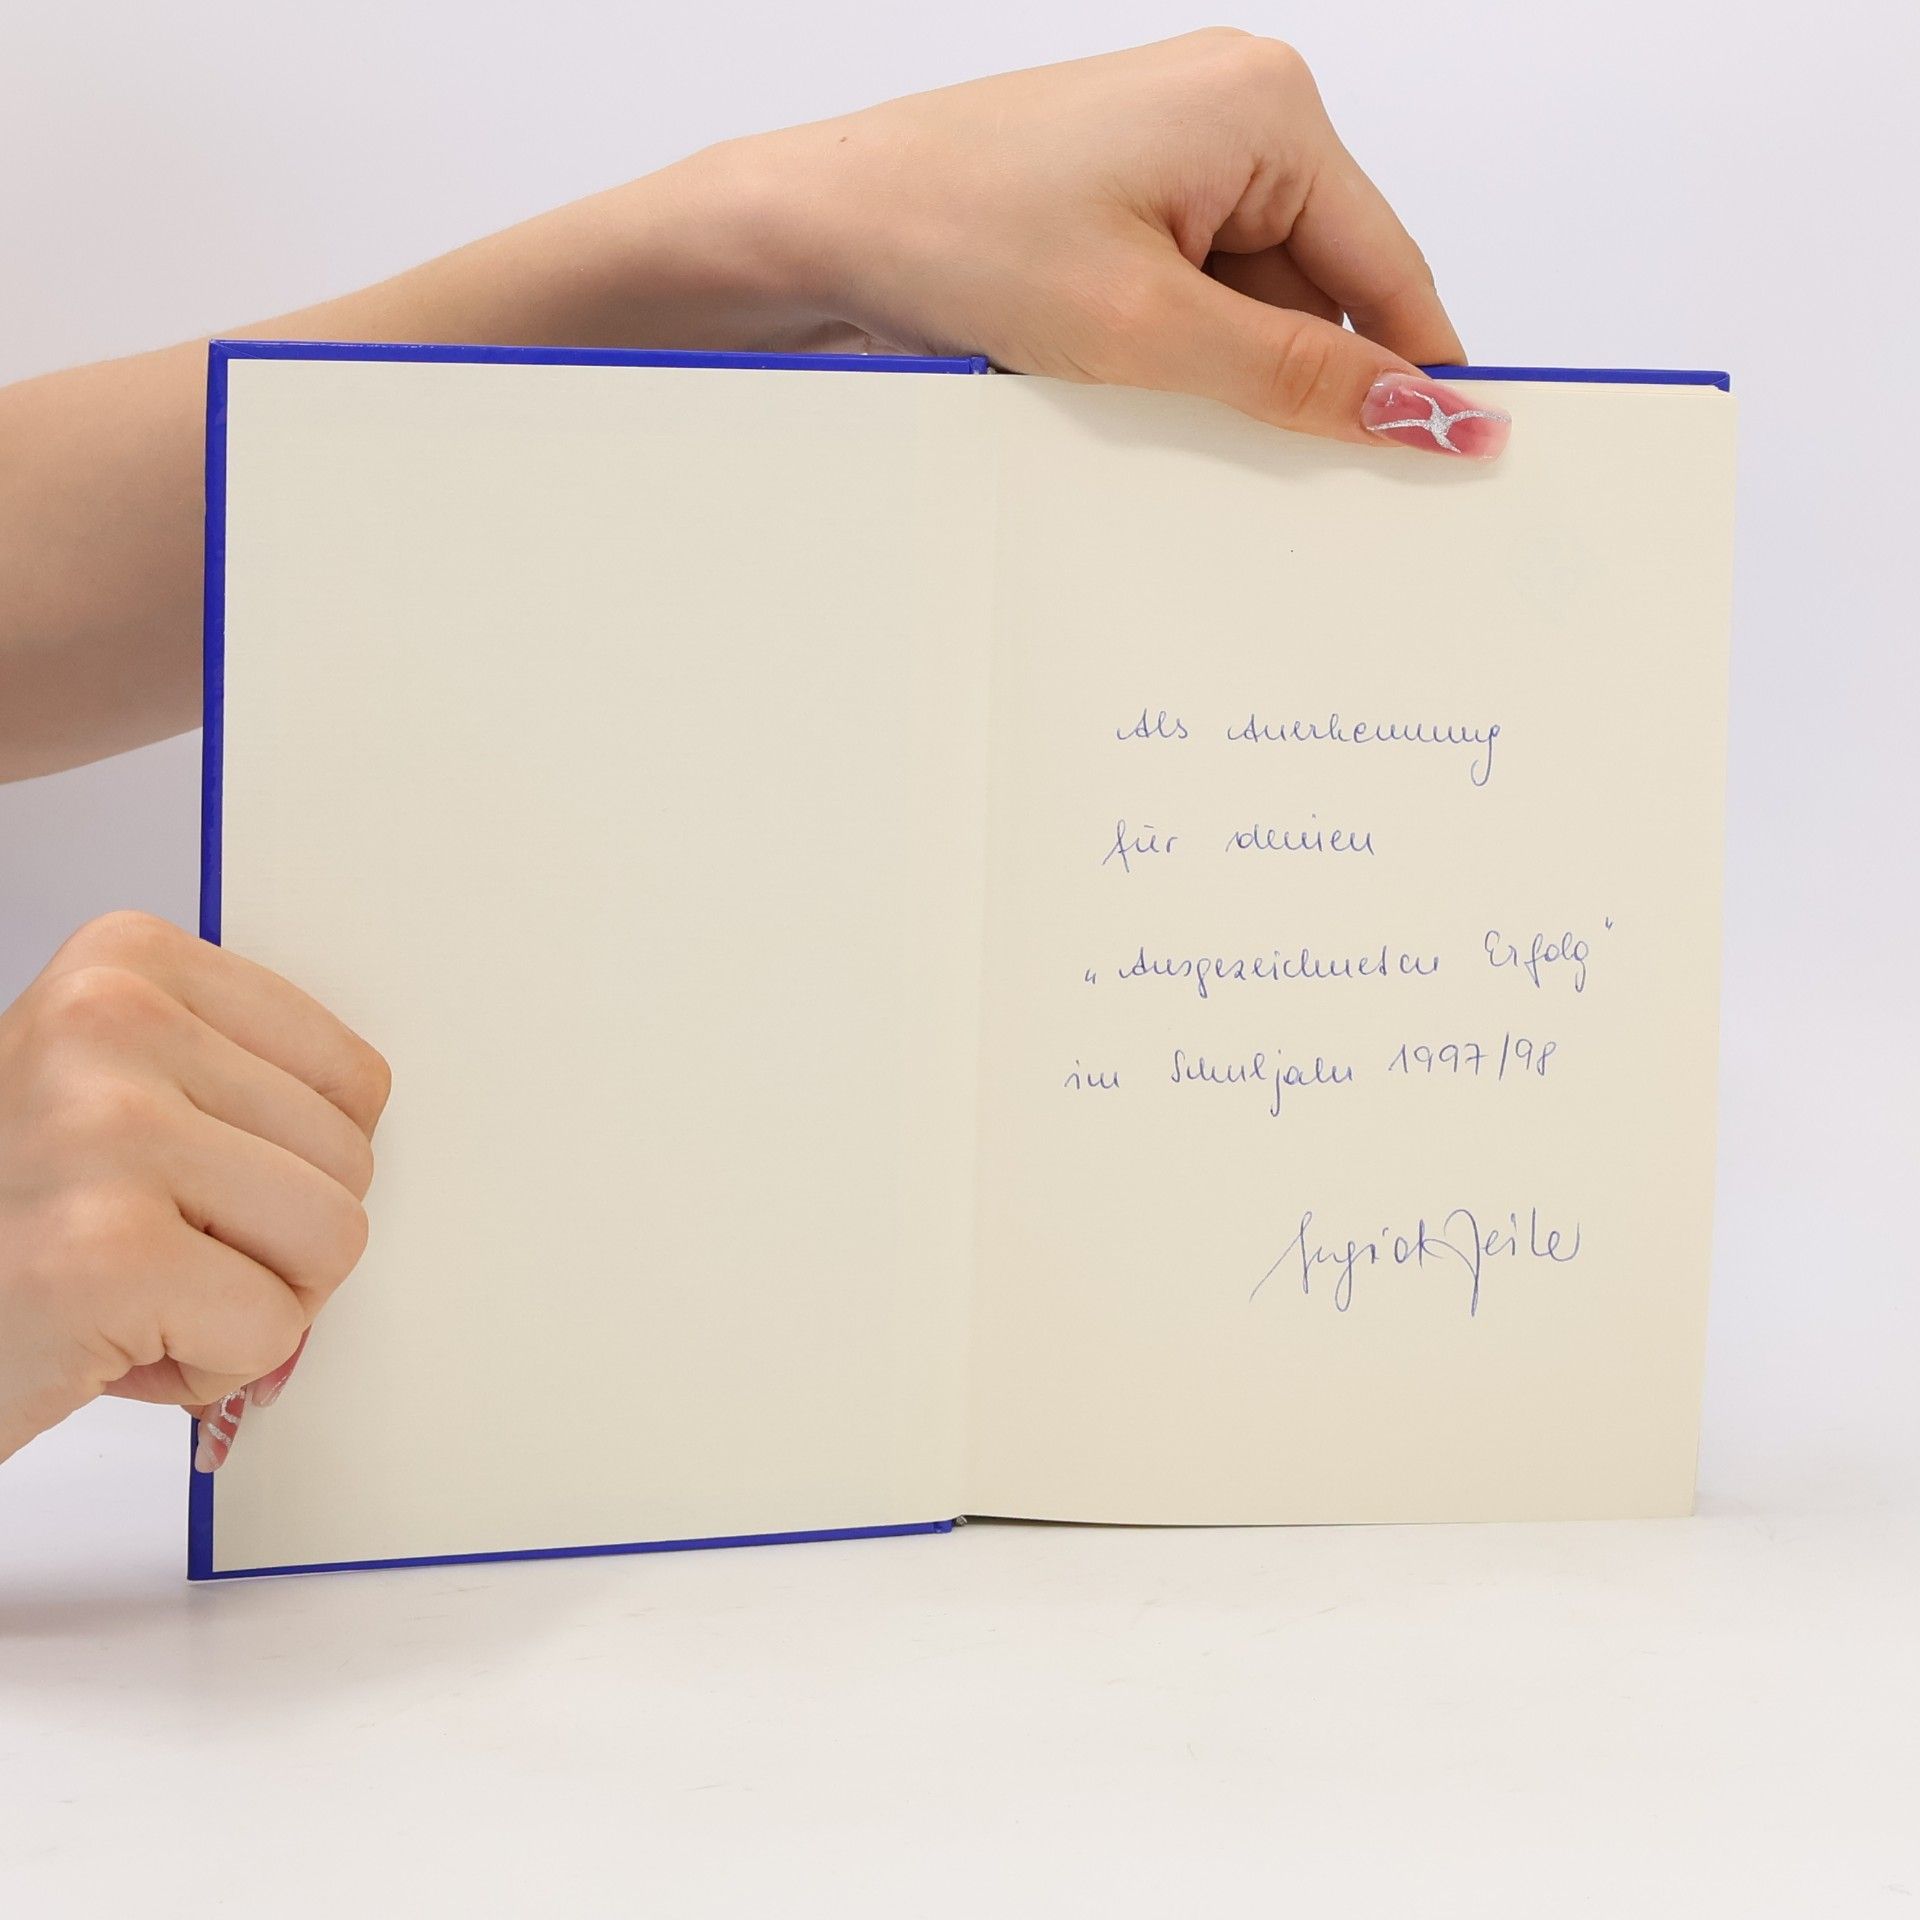 Als Anerkennung
für deinen
„Ausgezeichneten Erfolg"
im Schuljahr 1997/98
Ingrid